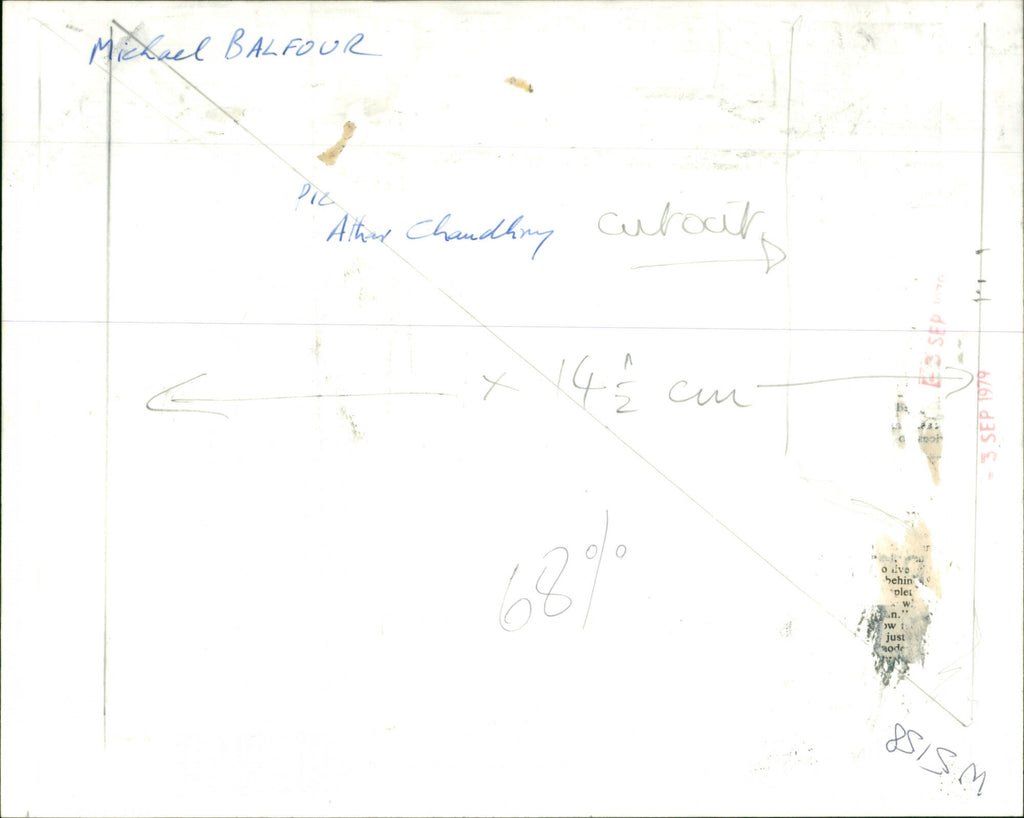 Michael BALFOUR
PIC
Athar Chaudhry
cutout
x 14 1/2 cm
- 3 SEP
- 3 SEP 1979
68%
o live
behin
plet
w
n."
ow t
just